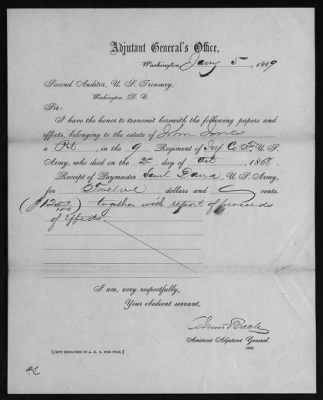 Adjutant General's Office,
Washington, Jany 5, 1869
Second Auditor, U. S. Treasury,
Washington D. C.
Sir:
I have the honor to transmit herewith the following papers and
effects, belonging to the estate of John
a Pvt, in the 9 Regiment of Inf Co U. S.
Army, who died on the 2d day of Oct, 1868
Receipt of Paymaster Saml Dana, U. S. Army,
for Twelve dollars and cents.
($12 00/100) together with report of proceeds
of effects.
I am, very respectfully,
Your obedient servant,
Assistant Adjutant General.